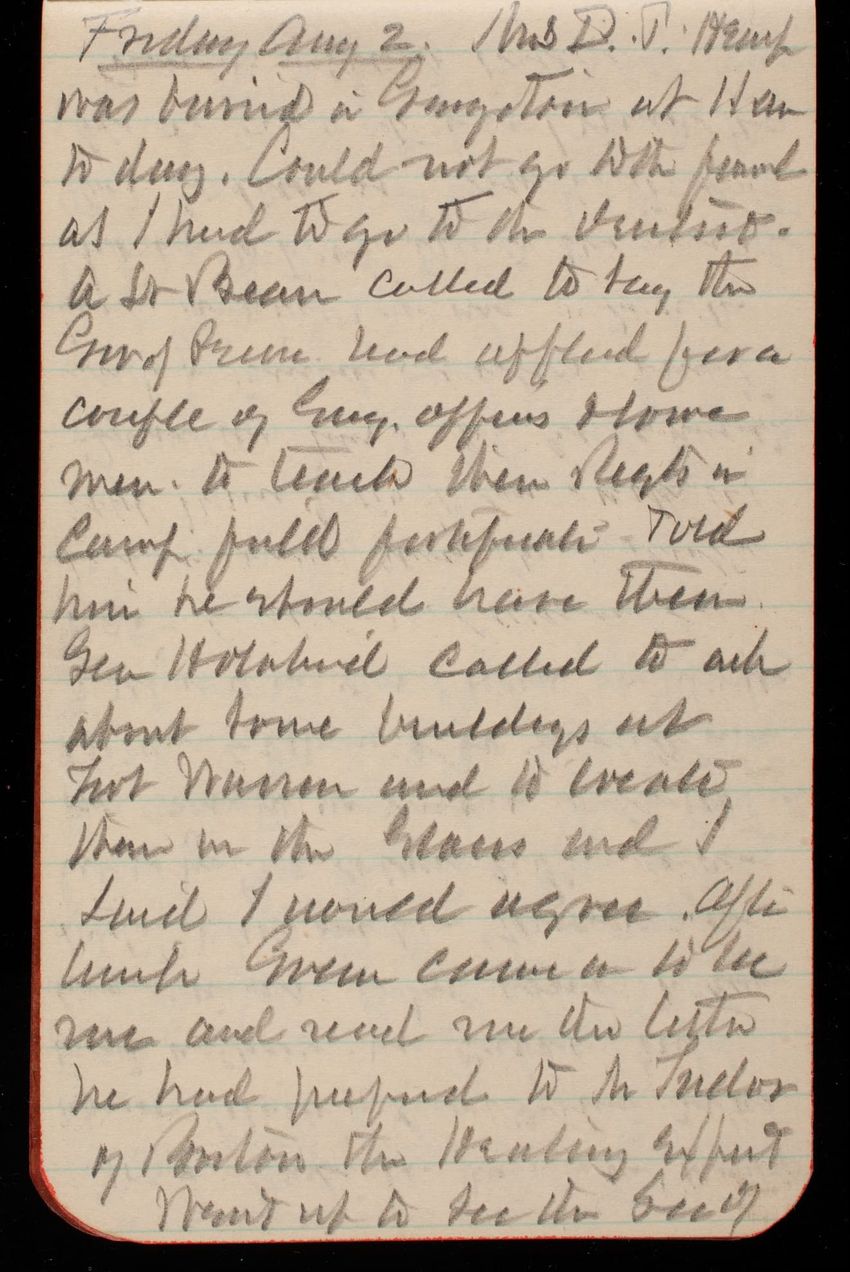 Friday Aug 2. Mrs D. T. Kemp
was buried in Georgetown at 11 am
to day. Could not go to the funeral
as I had to go to the dentist.
A Lt Bean called to say the
Gov of had applied for a
couple of Eng. officers & some
men. to teach them Regts in
Camp field fortificati Told
him he should have them.
Gen Holabird called to ask
about some buildings at
Fort Warren and to locate
them on the Glacis and I
said I would agree. After
lunch Green came in to see
me and read me the letter
he had prepared to Mr Tudor
of Boston the Heating Expert
Went up to see the Sec of